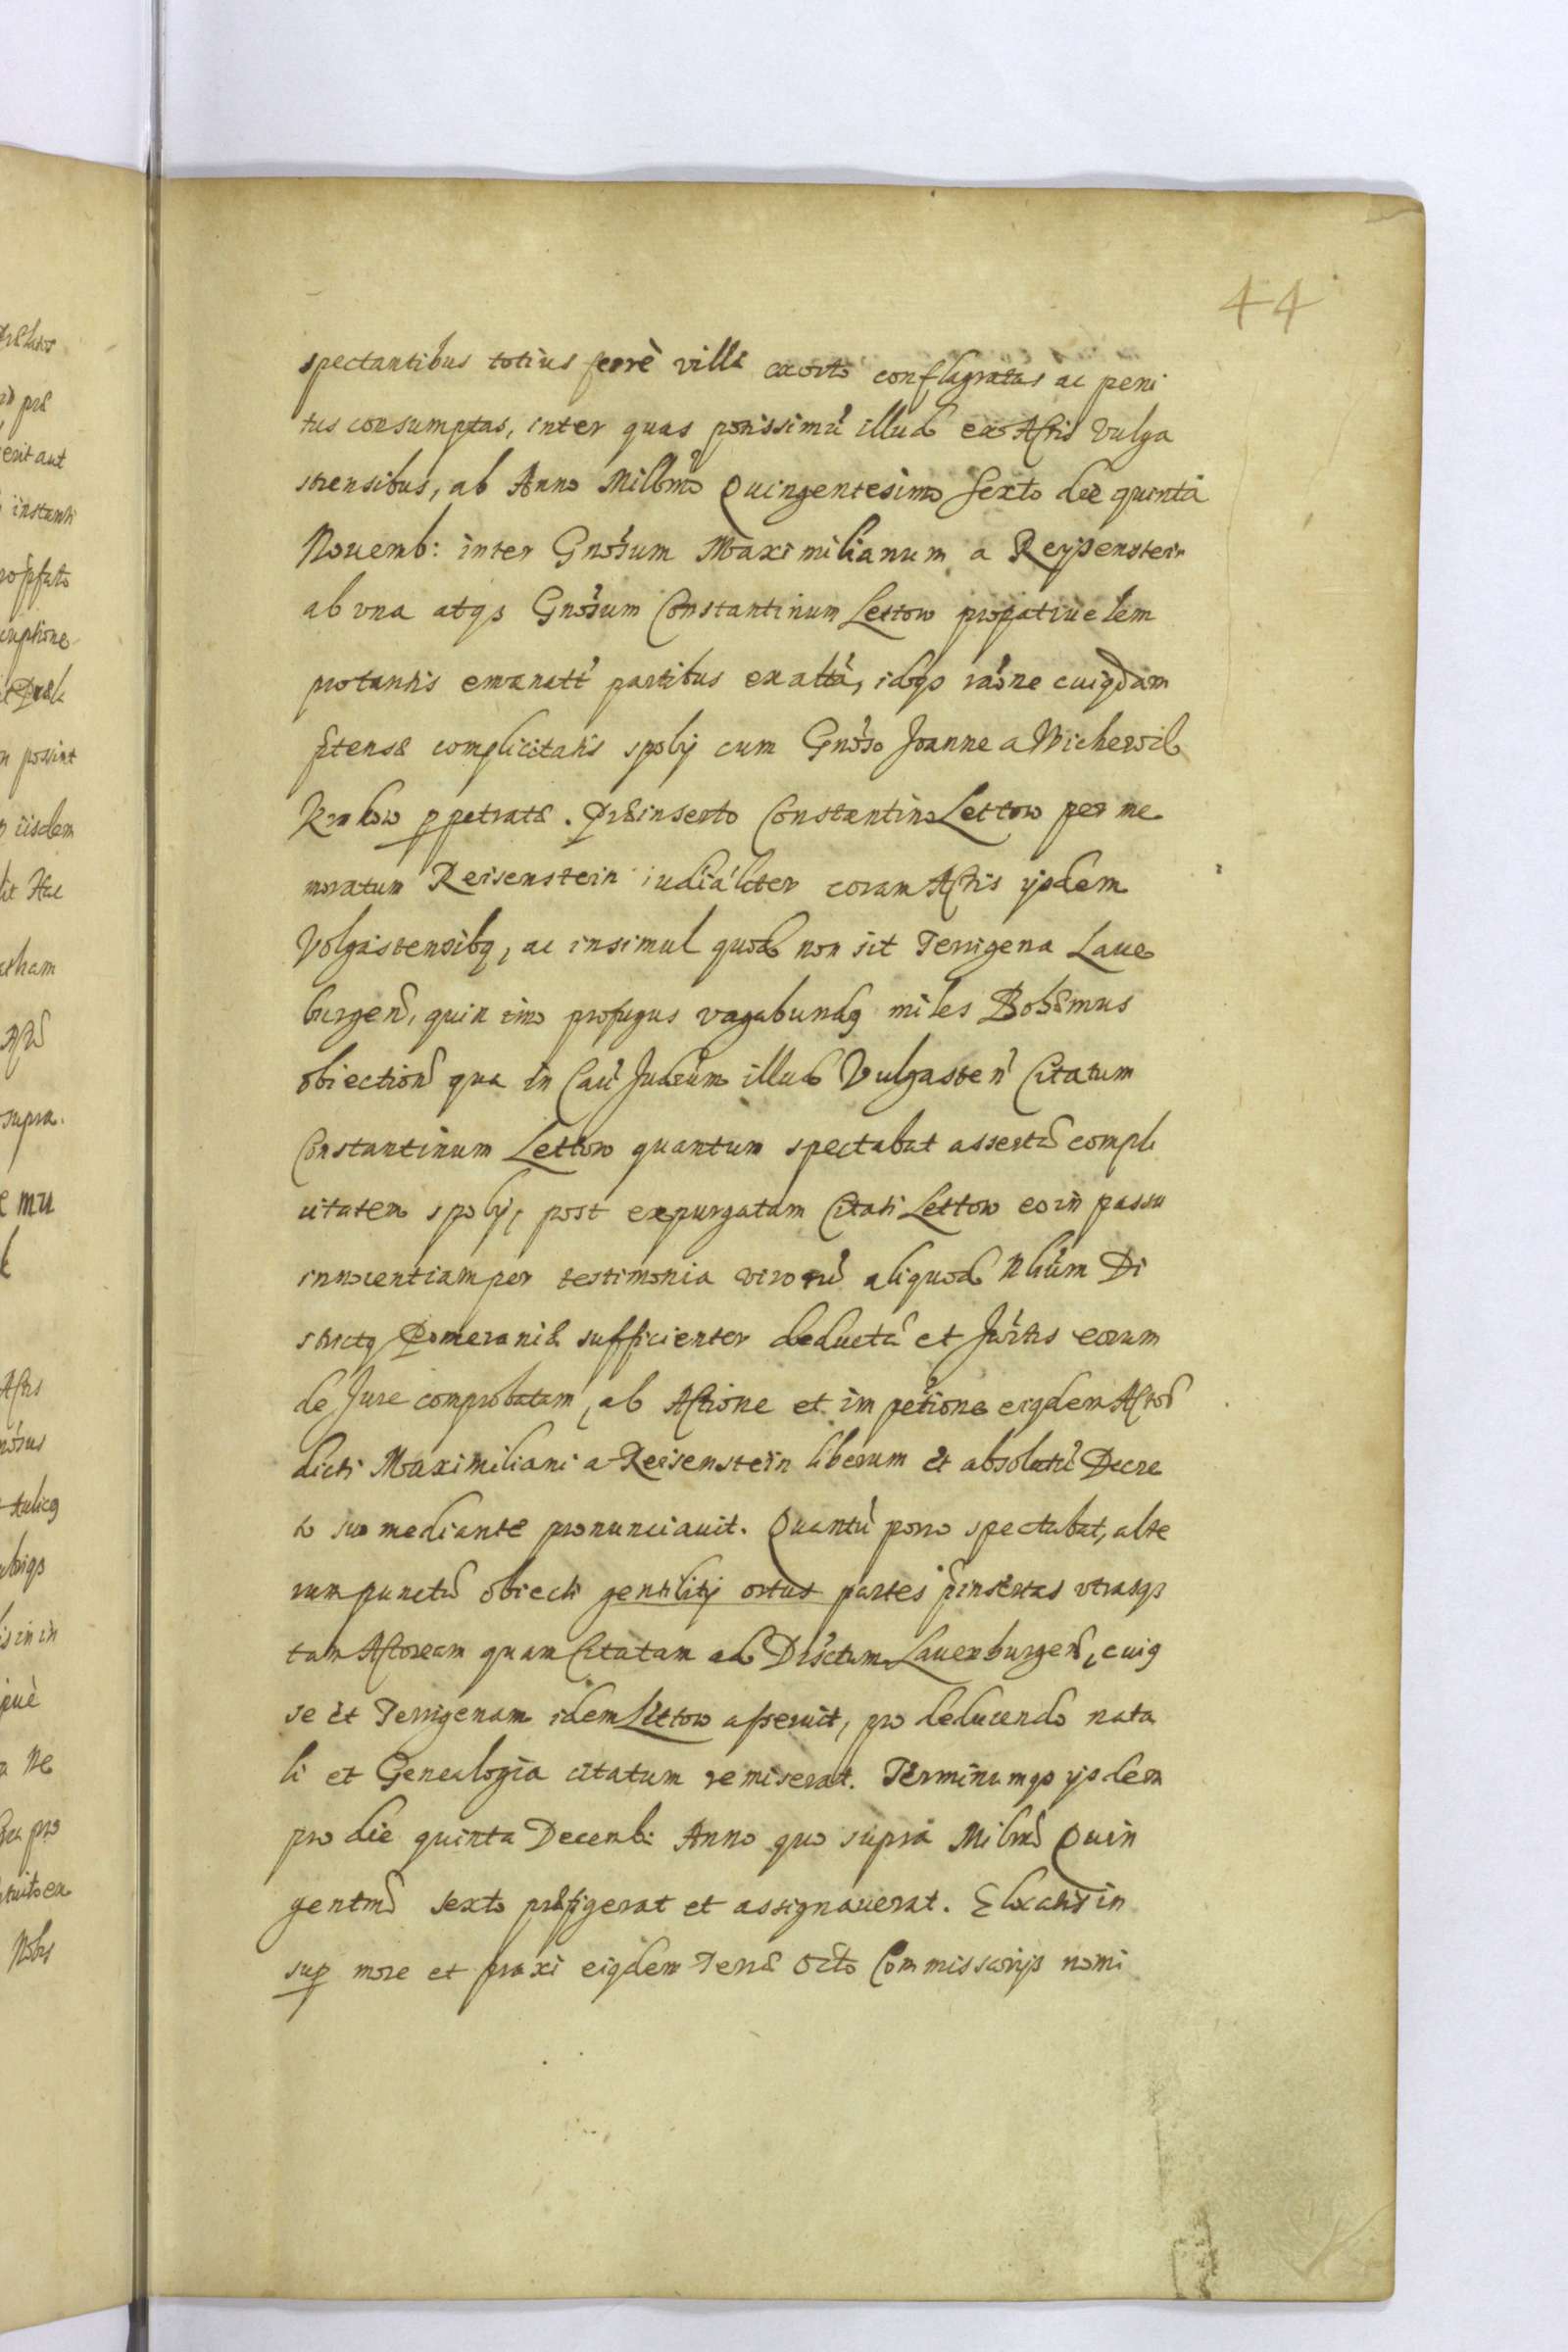 44
spectantibus totius ferrè villæ exorto conflagratas ac peni
tus consumptas, inter quas potissimũ illud ex Actis Vulga
stensibus, ab Anno Millmo Quingentesimo Sexto die quinta
Nouemb: inter Gnosum Maximilianum a Reysenstein
ab vna atqs Gnosum Constantinum Lettow
protunis emanatũ partibus extra, idqs raone cuiqdam
ptensæ complicitatis spolij cum Gnoso Joanne a Wicherwil
Krokow ppetratæ. Præinserto Constantino Lettow per me
moratum Reisenstein iudialiter coram Actis ijsdem
Volgastensibq, ac insimul quod non sit Terrigena Laue
burgen, quin imo profugus vagabundq miles Bohæmus
obiection qua in Cau Judeum illud Vulgasten Citatum
Constantinum Lettow quantum spectabat assertã compli
citatem spolij, post expurgatam Citati Lettow eo in passu
innocentiam per testimonia virorũ aliquod Nlium Di
strictq Pomeraniæ sufficienter deductã et Jurtis eorum
de Jure comprobatam, ab Actione et impetione eiqdem Actor
dicti Maximiliani a Reisenstein liberum et absolutũ Decre
to suo mediante pronunciauit. Quantũ porro spectabat, alte
rum punctũ obiecti gentilitij ortus partes pinsertas vtrasqs
tam Actoream quam Citatam ad Disctum Lauenburgen, cuiq
se et Terrigenam idem Lettow asseruit, pro deducendo nata
li et Genealogia citatum remiserat. Terminumqs ijsdem
pro die quinta Decemb: Anno quo supra Milmo Quin
gentmo sexto præfigerat et assignauerat. Elocatis in
sup more et praxi eiqdem Terræ Octo Commissarijs nomi